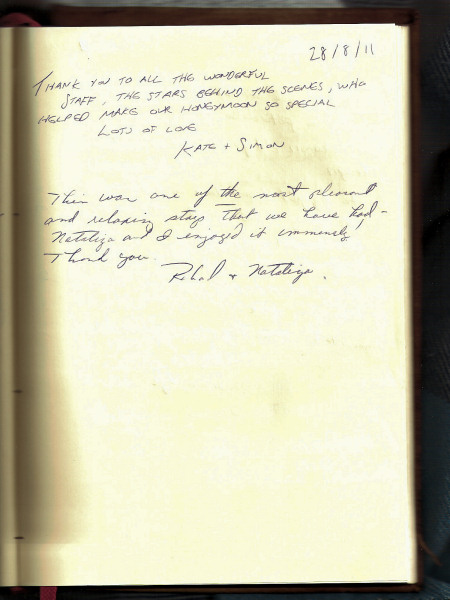 28/8/11
THANK YOU TO ALL THE WONDERFUL
STAFF, THE STARS BEHIND THE SCENES, WHO
HELPED MAKE OUR HONEYMOON SO SPECIAL
LOTS OF LOVE
KATE + SIMON
This was one of the most pleasant
and relaxing stay that we have had -
Nataliza and I enjoyed it immensely
Thank you.
+ Nataliza.